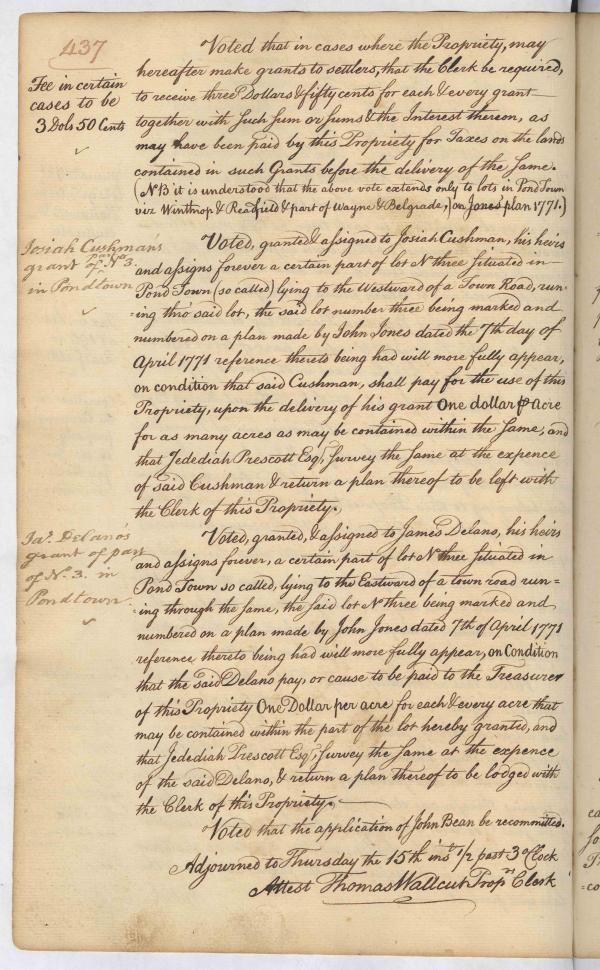 437
Fee in certain
cases to be
3 Dols 50 Cents
Voted that in cases where the Propriety, may
hereafter make grants to settlers, that the Clerk be required,
to receive three Dollars & fifty cents for each & every grant
together with such sum or sums & the Interest thereon, as
may have been paid by this Propriety for Taxes on the lands
contained in such Grants before the delivery of the same.
(NB it is understood that the above vote extends only to lots in Pond Town
viz Winthrop & Readfield & part of Wayne & Belgrade,) on Jones' plan 1771.)
Josiah Cushman's
grant pt. of No. 3.
in Pondtown
Voted, granted & assigned to Josiah Cushman, his heirs
and assigns forever a certain part of lot No three situated in
Pond Town (so called) lying to the Westward of a Town Road, run=
=ing thro' said lot, the said lot number three being marked and
numbered on a plan made by John Jones dated the 7th day of
April 1771 reference thereto being had will more fully appear,
on condition that said Cushman, shall pay for the use of this
Propriety, upon the delivery of his grant One dollar ⅌ Acre
for as many acres as may be contained within the same, and
that Jedediah Prescott Esqr, survey the same at the expence
of said Cushman & return a plan thereof to be left with
the Clerk of this Propriety.
Jas. Delano's
grant of part
of No. 3. in
Pondtown
Voted, granted, & assigned to James Delano, his heirs
and assigns forever, a certain part of lot No three situated in
Pond Town so called, lying to the Eastward of a town road run=
=ing through the same, the said lot No three being marked and
numbered on a plan made by John Jones dated 7th of April 1771
reference thereto being had will more fully appear, on Condition
that the said Delano pay, or cause to be paid to the Treasurer
of this Propriety One Dollar per acre for each & every acre that
may be contained within the part of the lot hereby granted, and
that Jedediah Prescott Esqr, survey the same at the expence
of the said Delano, & return a plan thereof to be lodged with
the Clerk of this Propriety.
Voted that the application of John Bean be recommitted.
Adjourned to Thursday the 15th inst 1/2 past 3 oClock
Attest Thomas Wallcut Proprs Clerk